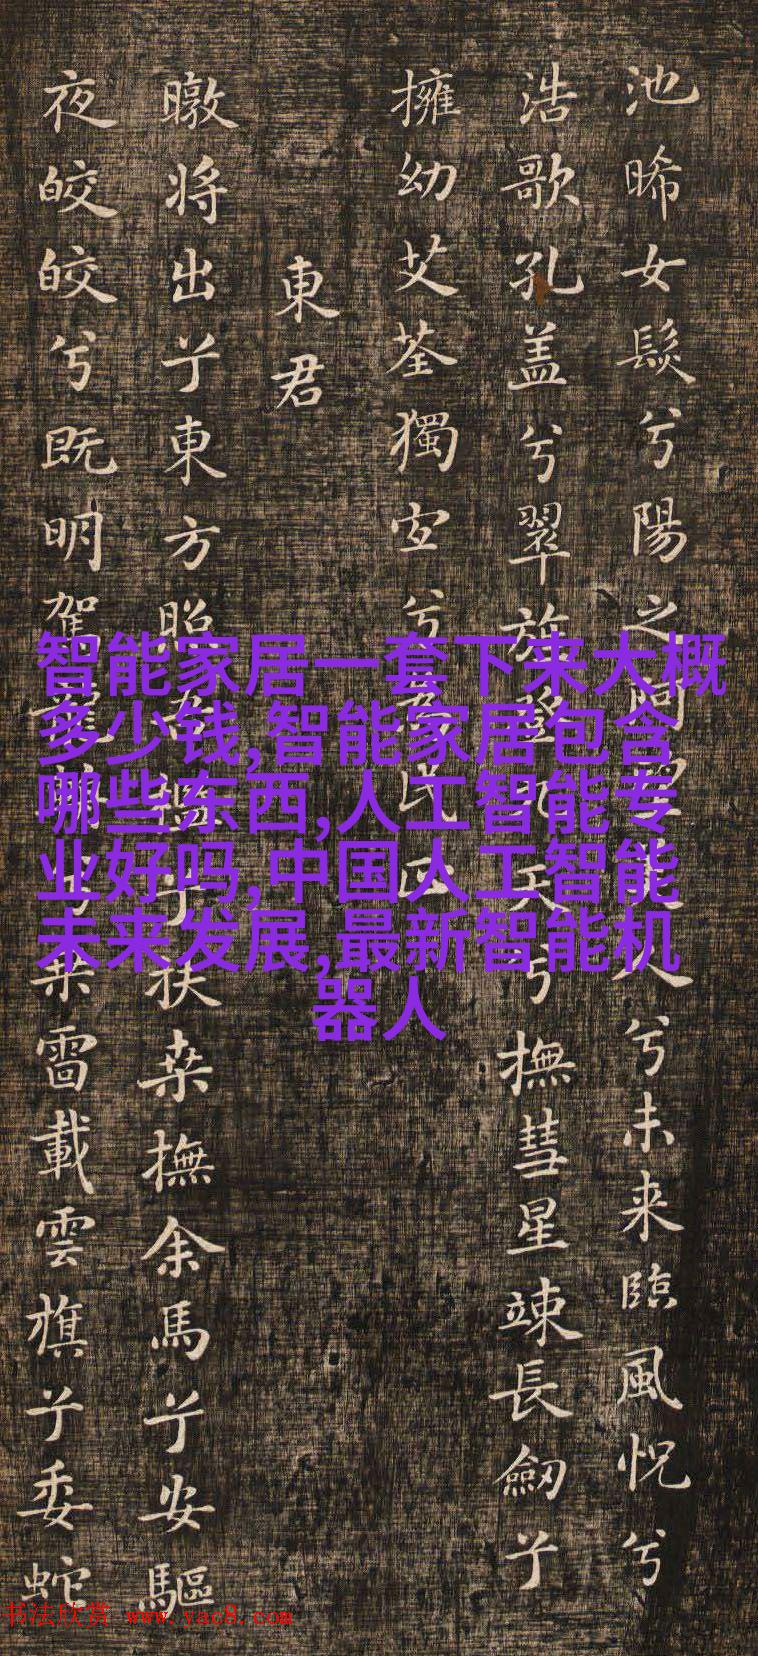 池晞女髮兮陽之阿望美人兮未来臨風怳兮
浩歌孔盖兮翠旍登九天兮撫彗星竦長劒兮
擁幼艾荃獨宜兮為民正
東君
暾将出兮東方照吾檻兮扶桒撫余馬兮安驅
夜皎皎兮既明駕龍輈兮乗雷載雲旗兮委蛇
智能家居一套下来大概
多少钱,智能家居包含
哪些东西,人工智能专
业好吗,中国人工智能
未来发展,最新智能机
器人
书法欣赏 www.yac8.com